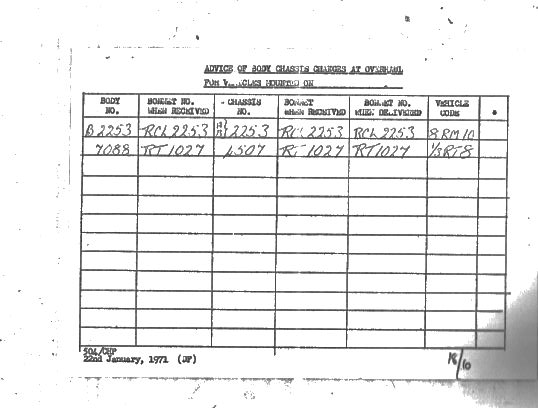 ADVICE OF BODY CHASSIS CHANGES AT OVERHAUL
FOR VEHICLES MOUNTED ON
BODY NO. BONNET NO. WHEN RECEIVED CHASSIS NO. BONNET WHEN RECEIVED BONNET NO. WHEN DELIVERED VEHICLE CODE *
B2253 RCL2253 2253 RCL2253 RCL2253 8RM10
7088 RT1027 4507 RT1027 RT1027 1/3RT8
504/CHP
22nd January, 1971 (JF)
18/10